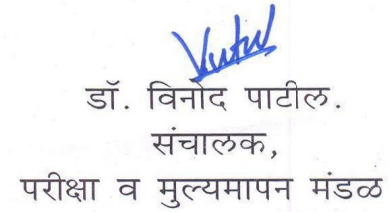 डॉ. विनोद पाटील.
संचालक,
परीक्षा व मुल्यमापन मंडळ